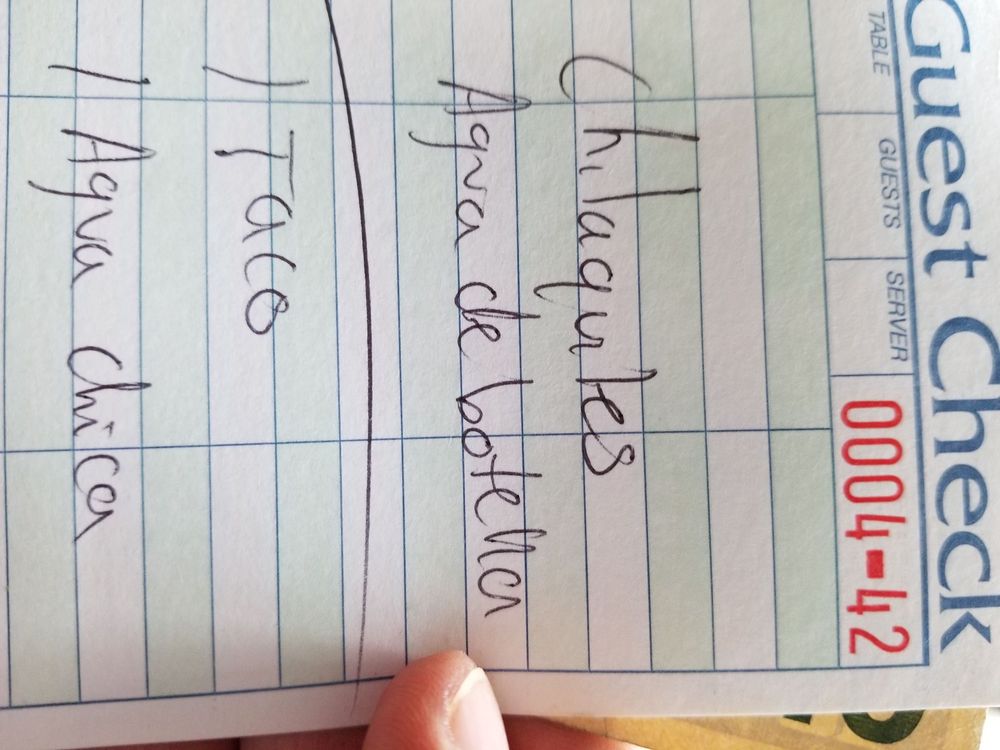 Guest Check
TABLE GUESTS SERVER
0004-42
Chilaquiles
Agua de botella
1 Taco
1 Agua Chica